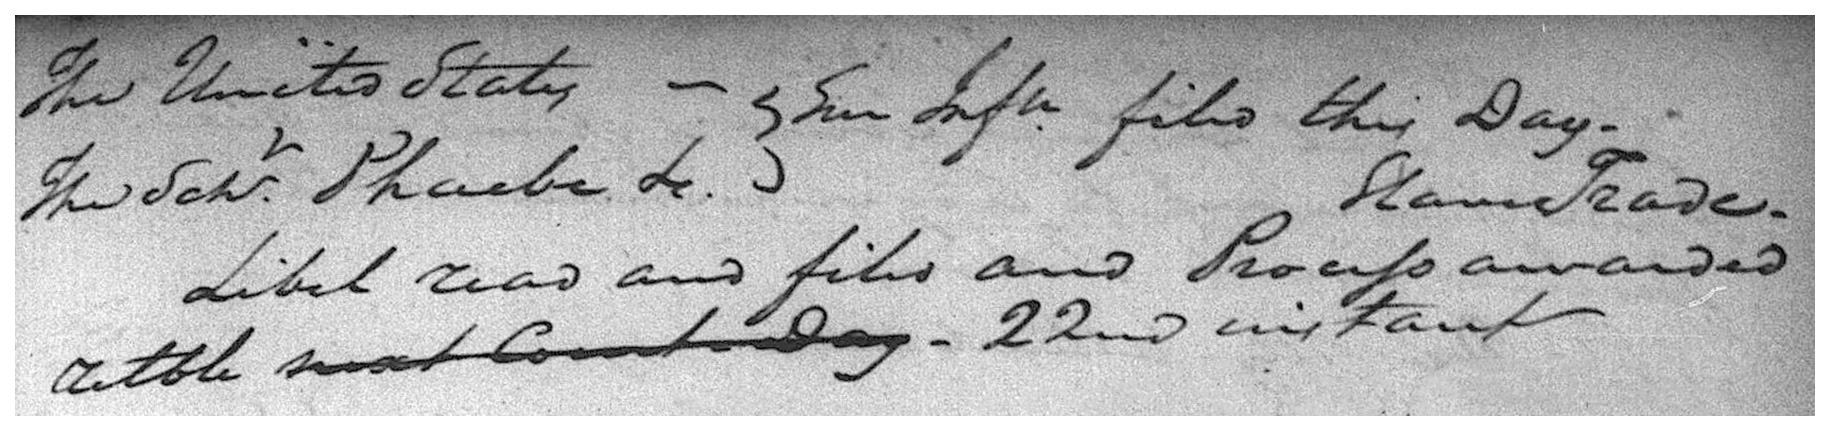 The United States — } Sur Infn. filed this Day.
v
The Schr. Phoebe &c. } Slave Trade.
Libel read and filed and Process awarded
retble next Court Day - 22nd instant